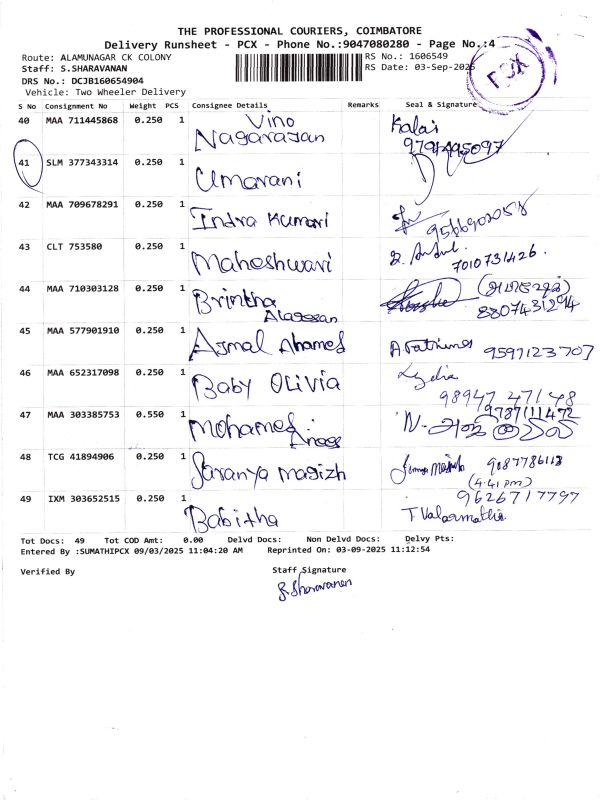 THE PROFESSIONAL COURIERS, COIMBATORE
Delivery Runsheet - PCX - Phone No.:9047080280 - Page No.:4
Route: ALAMUNAGAR CK COLONY
RS No.: 1606549
Staff: S.SHARAVANAN
RS Date: 03-Sep-2025
DRS No.: DCJB160654904
Vehicle: Two Wheeler Delivery
PCX
S No Consignment No Weight PCS Consignee Details Remarks Seal & Signature
40 MAA 711445868 0.250 1 Vino Nagarajan Kalai
41 SLM 377343314 0.250 1 Umarani
42 MAA 709678291 0.250 1 Indra Kumari
43 CLT 753580 0.250 1 Maheshwari 7010731426.
44 MAA 710303128 0.250 1 Brintha Alagesan 8807431294
45 MAA 577901910 0.250 1 Ajmal Ahamed A.Fathima 9597123707
46 MAA 652317098 0.250 1 Baby Olivia Lydia 98947 47148
47 MAA 303385753 0.550 1 Mohamed Anas 9787111472
48 TCG 41894906 0.250 1 Saranya Magizh 9087786113 (4.41 pm)
49 IXM 303652515 0.250 1 Babitha 9626717797 T Valarmathi
Tot Docs: 49 Tot COD Amt: 0.00 Delvd Docs: Non Delvd Docs: Delvy Pts:
Entered By :SUMATHIPCX 09/03/2025 11:04:20 AM Reprinted On: 03-09-2025 11:12:54
Verified By Staff Signature
S.Sharavanan